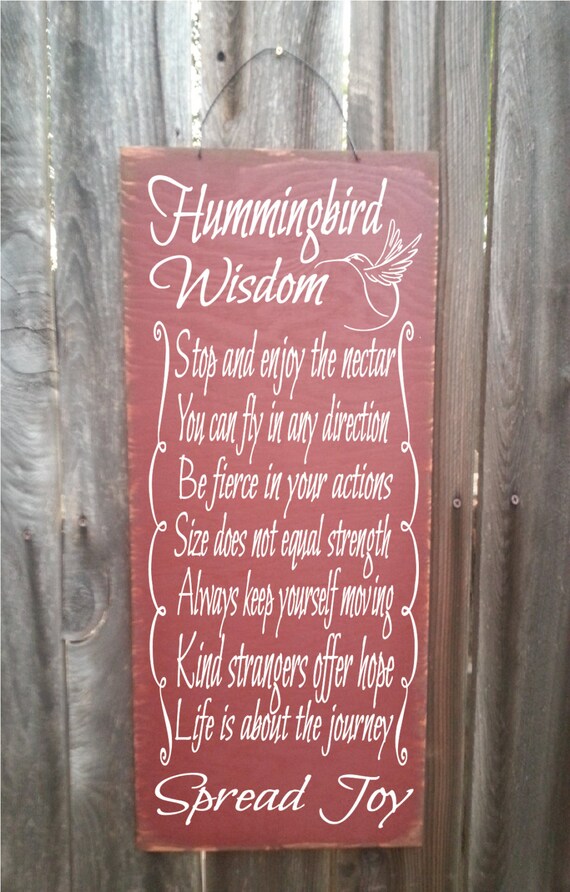 Hummingbird
Wisdom
Stop and enjoy the nectar
You can fly in any direction
Be fierce in your actions
Size does not equal strength
Always keep yourself moving
Kind strangers offer hope
Life is about the journey
Spread Joy